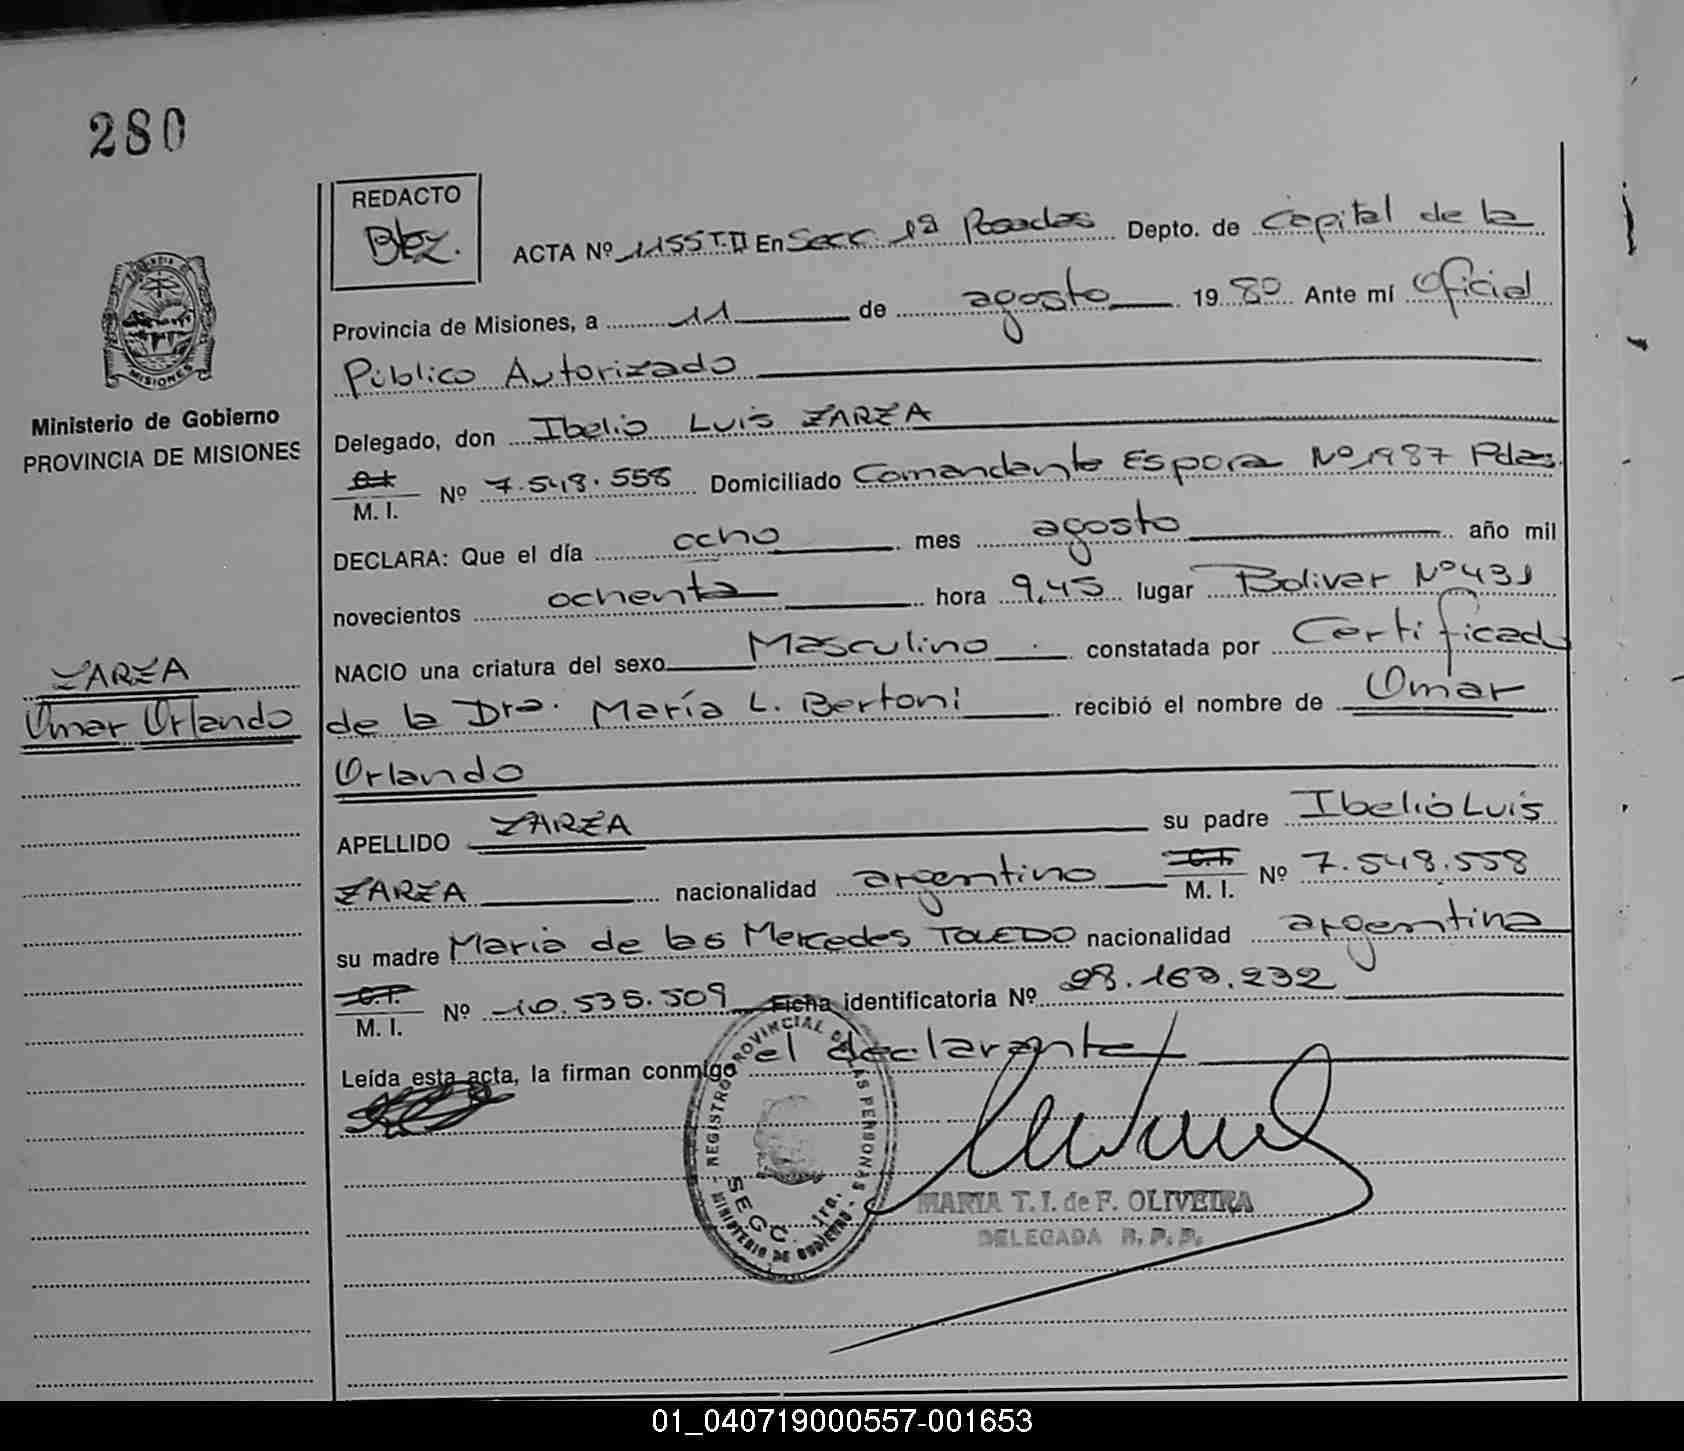 280
REDACTO
ACTA Nº 1155 T.II En Secc. 1ª Posadas Depto. de Capital de la
Provincia de Misiones, a 11 de agosto 1980 Ante mí Oficial
Público Autorizado
MISIONES
Ministerio de Gobierno
PROVINCIA DE MISIONES
Delegado, don Ibelio Luis ZARZA
M. I. Nº 7.548.558 Domiciliado Comandante Espora Nº 1987 Pdas.
DECLARA: Que el día ocho mes agosto año mil
novecientos ochenta hora 9,45 lugar Bolivar Nº 431
NACIO una criatura del sexo Masculino constatada por Certificado
ZARZA
Omar Orlando
de la Dra. María L. Bertoni recibió el nombre de Omar
Orlando
APELLIDO ZARZA su padre Ibelio Luis
ZARZA nacionalidad argentino C.I. M. I. Nº 7.548.558
su madre Maria de las Mercedes TOLEDO nacionalidad argentina
C.I. M. I. Nº 10.535.509 Ficha identificatoria Nº 28.163.232
Leída esta acta, la firman conmigo el declarante
REGISTRO PROVINCIAL DE LAS PERSONAS
SECC. 1ra.
MINISTERIO DE GOBIERNO
MARIA T. I. de F. OLIVEIRA
DELEGADA R. P. P.
01_040719000557-001653